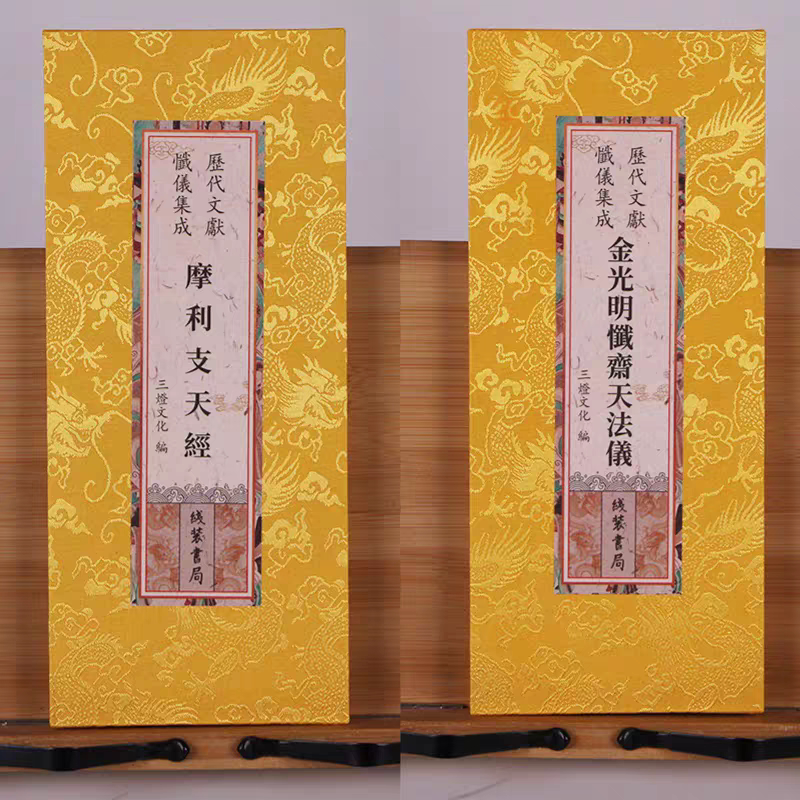 歷代文獻
懺儀集成
摩利支天經
三燈文化 編
线装書局
歷代文獻
懺儀集成
金光明懺齋天法儀
三燈文化 編
线装書局